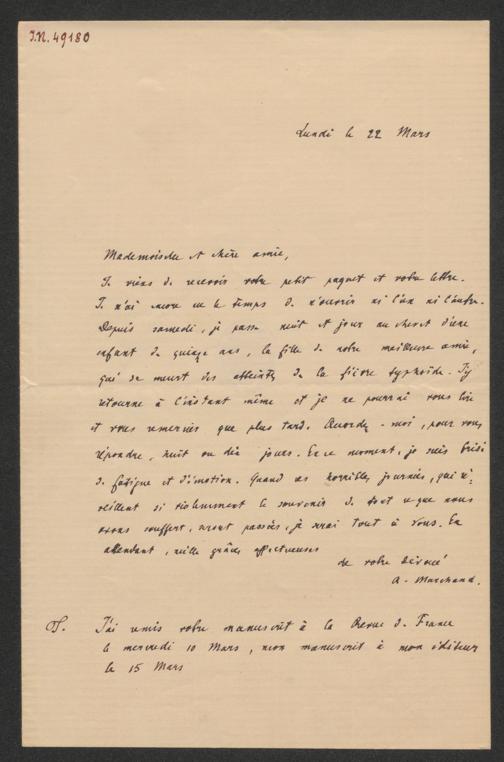 I.N. 49180
Lundi le 22 Mars
Mademoiselle et chère amie,
Je viens de recevoir votre petit paquet et votre lettre.
Je n'ai encore eu le temps de n'ouvrir ni l'un ni l'autre.
Depuis samedi, je passe nuit et jour au chevet d'une
enfant de quinze ans, la fille de notre meilleure amie,
qui se meurt des atteintes de la fièvre typhoïde. J'y
retourne à l'instant même et je ne pourrai vous lire
et vous remercier que plus tard. Accordez-moi, pour vous
répondre, huit ou dix jours. En ce moment, je suis brisé
de fatigue et d'émotion. Quand ces horribles journées, qui ré-
veillent si violemment le souvenir de tout ce que nous
avons souffert, seront passées, je serai tout à vous. En
attendant, mille grâces affectueuses
de votre dévoué
A. Marchand.
J'ai remis votre manuscrit à la Revue de France
le mercredi 10 Mars, mon manuscrit à mon éditeur
le 15 Mars